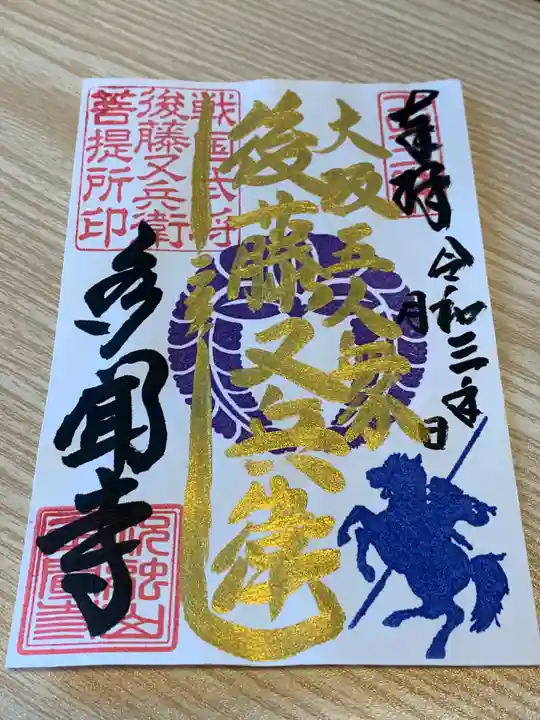 奉拝
令和三年
月
日
大坂五人衆
後藤又兵衛
戦国武将
後藤又兵衛
菩提所印
多聞寺